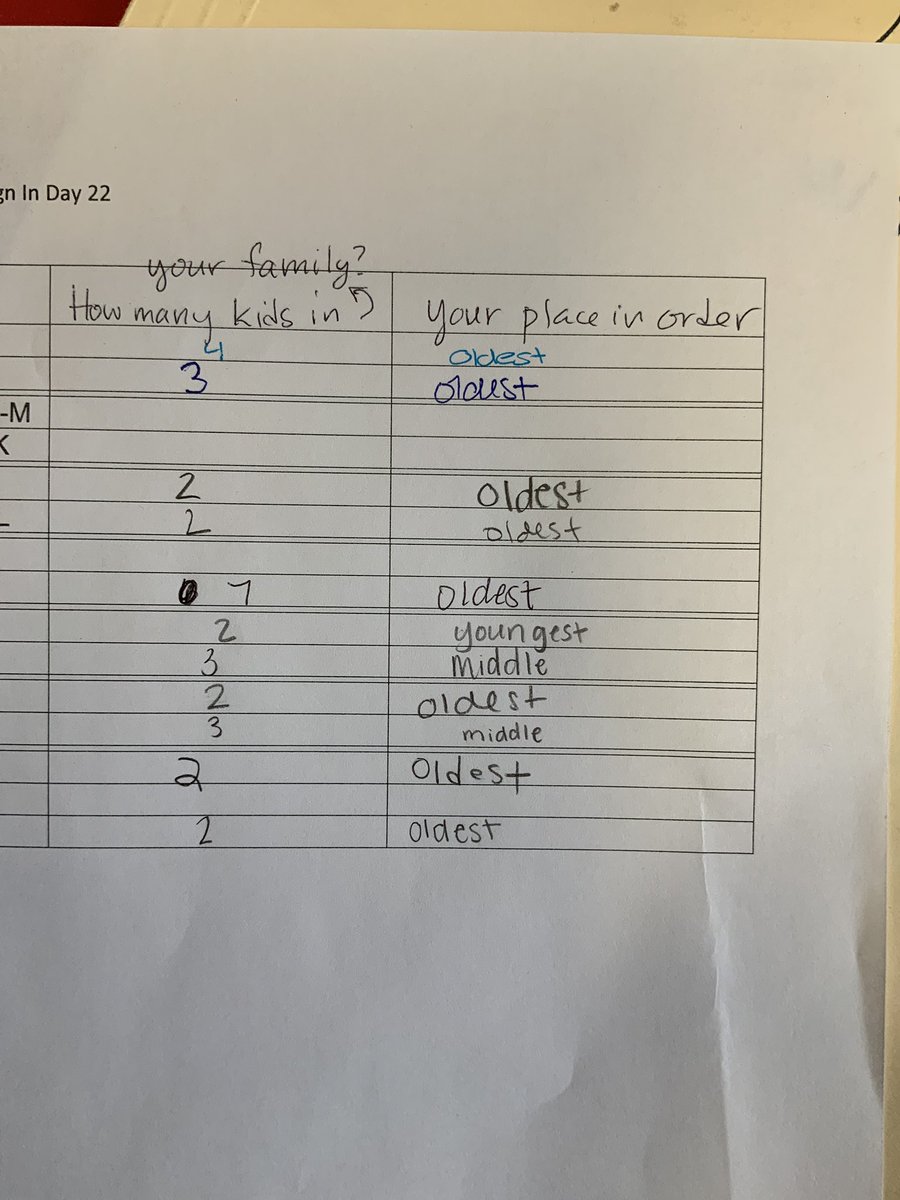 gn In Day 22
your family?
How many kids in
your place in order
4 oldest
3 oldest
-M
K
2 oldest
2 oldest
7 oldest
2 youngest
3 middle
2 oldest
3 middle
2 oldest
2 oldest